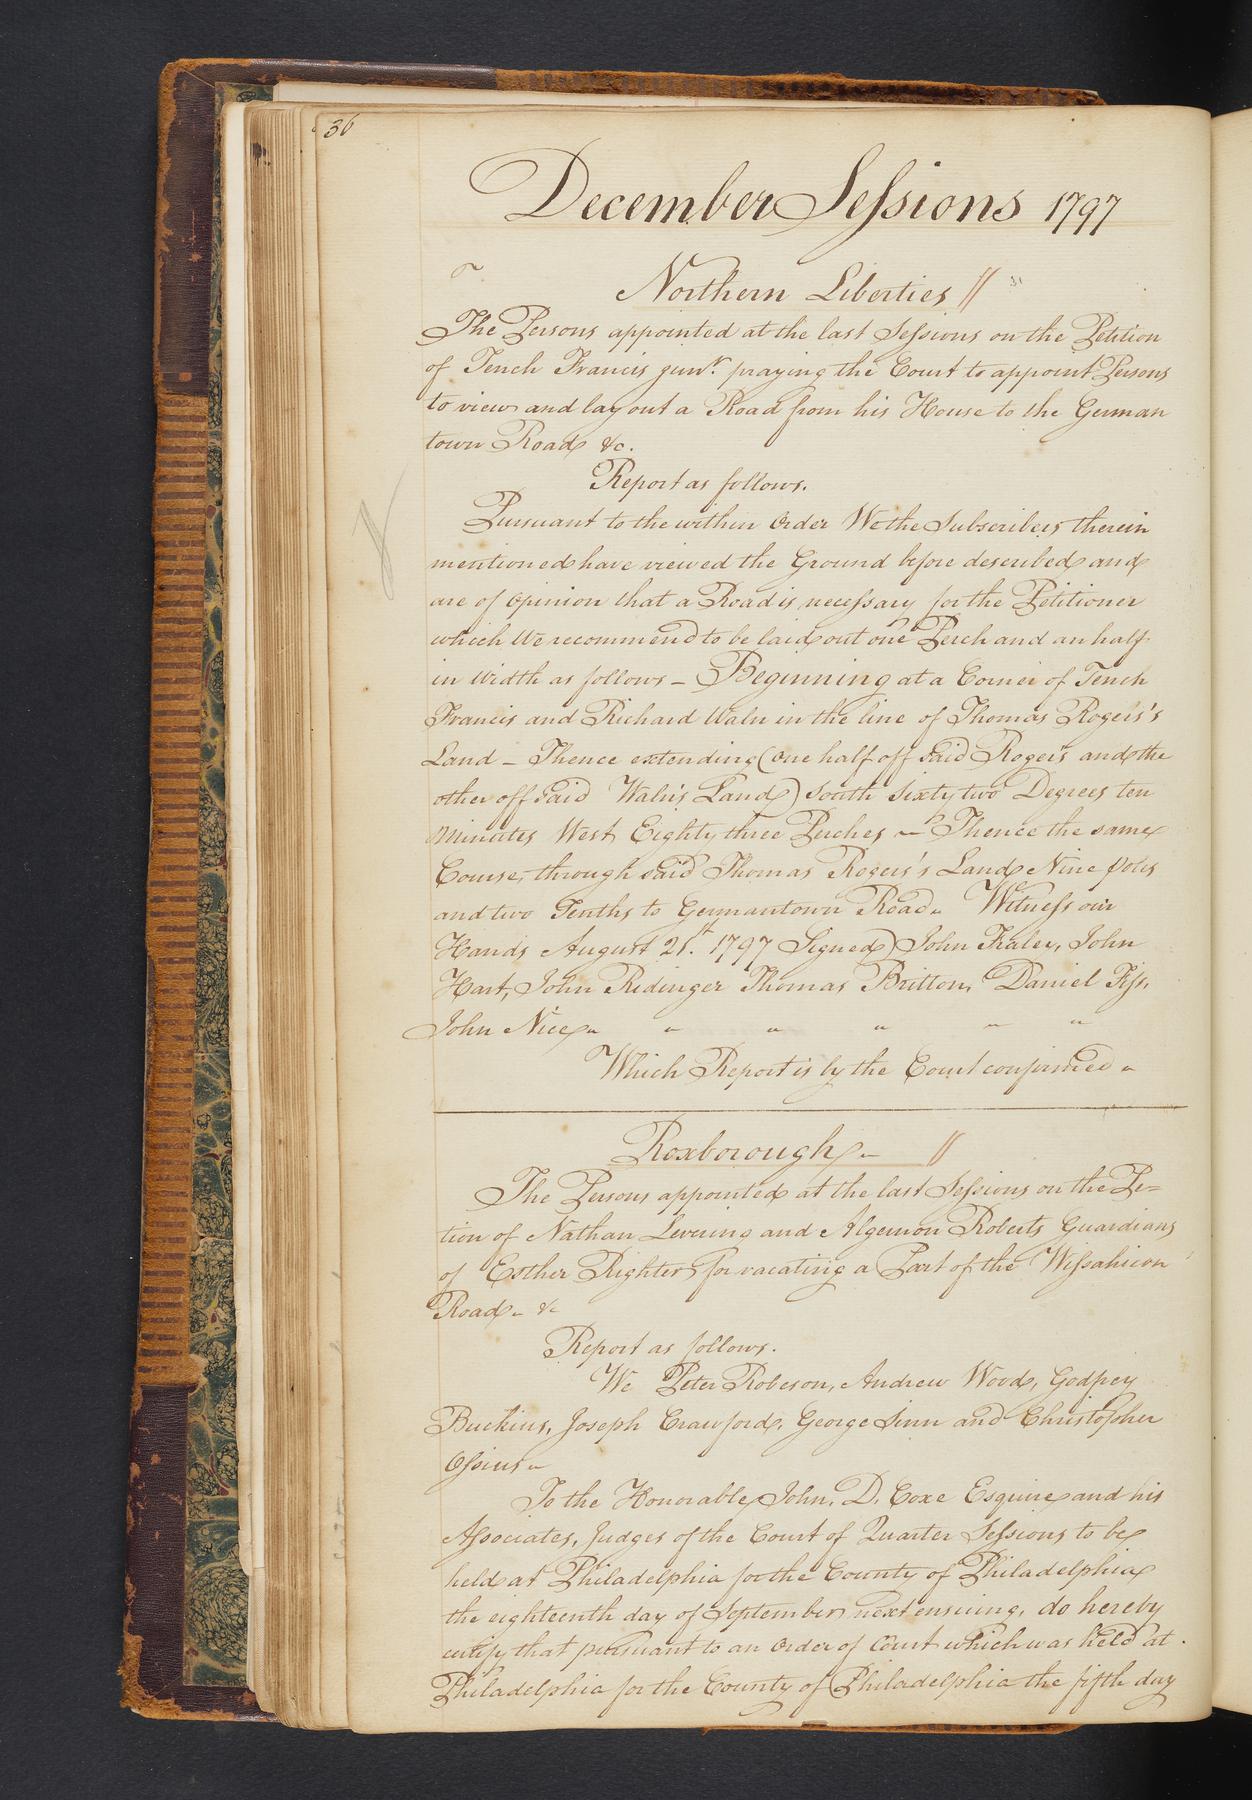 36
December Sessions 1797
Northern Liberties //
The Persons appointed at the last Sessions on the Petition
of Tench Francis junr. praying the Court to appoint Persons
to view and lay out a Road from his House to the German
town Road &c.
Report as follows.
Pursuant to the within Order We the Subscribers therein
mentioned have viewed the Ground before described and
are of opinion that a Road is necessary for the Petitioner
which We recommend to be laid out one Perch and an half
in width as follows – Beginning at a Corner of Tench
Francis and Richard Waln in the line of Thomas Rogers's
Land – Thence extending (one half off said Rogers and the
other off said Waln's Land) South Sixty two Degrees ten
Minutes West Eighty three Perches – Thence the same
Course, through said Thomas Rogers's Land Nine poles
and two Tenths to Germantown Road. Witness our
Hands August 21st. 1797 Signed) John Fraley, John
Hart, John Ridinger Thomas Britton, Daniel
John Nice
Which Report is by the Court confirmed
Roxborough – //
The Persons appointed at the last Sessions on the Pe=
tion of Nathan Levering and Algernon Roberts Guardians
of Esther Righter, for vacating a Part of the Wissahicon
Road &c
Report as follows.
We Peter Robeson, Andrew Wood, Godfrey
Buckius, Joseph Crawford, George Sinn and Christopher
Ossius
To the Honorable John. D. Coxe Esquire and his
Associates, Judges of the Court of Quarter Sessions to be
held at Philadelphia for the County of Philadelphia
the eighteenth day of September next ensuing, do hereby
certify that pursuant to an Order of Court which was held at
Philadelphia for the County of Philadelphia the fifth day